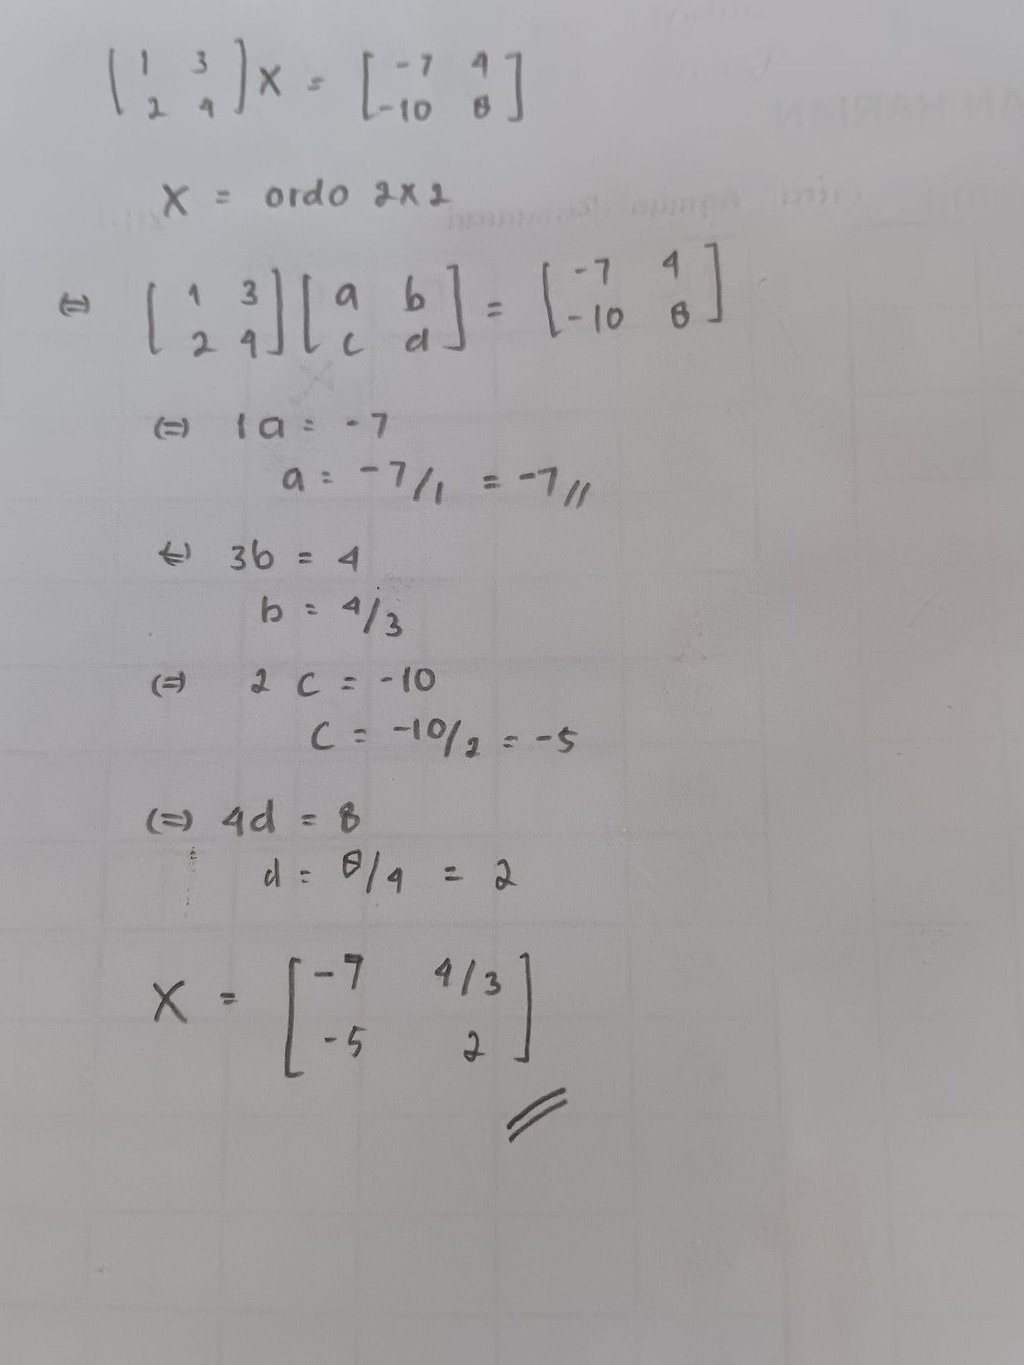 [1 3
2 4] X = [-7 4
-10 8]
X = ordo 2x2
⇔ [1 3
2 4] [a b
c d] = [-7 4
-10 8]
⇔ 1a = -7
a = -7/1 = -7 //
⇔ 3b = 4
b = 4/3
⇔ 2 c = -10
c = -10/2 = -5
⇔ 4d = 8
d = 8/4 = 2
X = [-7 4/3
-5 2]
//